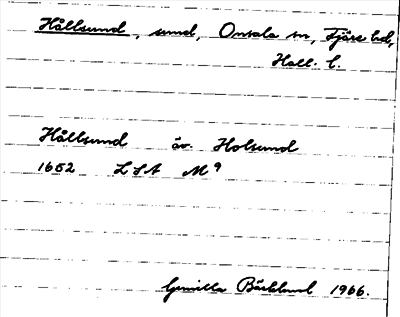 Hållsund, sund, Onsala sn, Fjäre hd,
Hall. l.
Hållsund äv. Holsund
1652 LSA M⁹
Gunilla Bäcklund 1966.